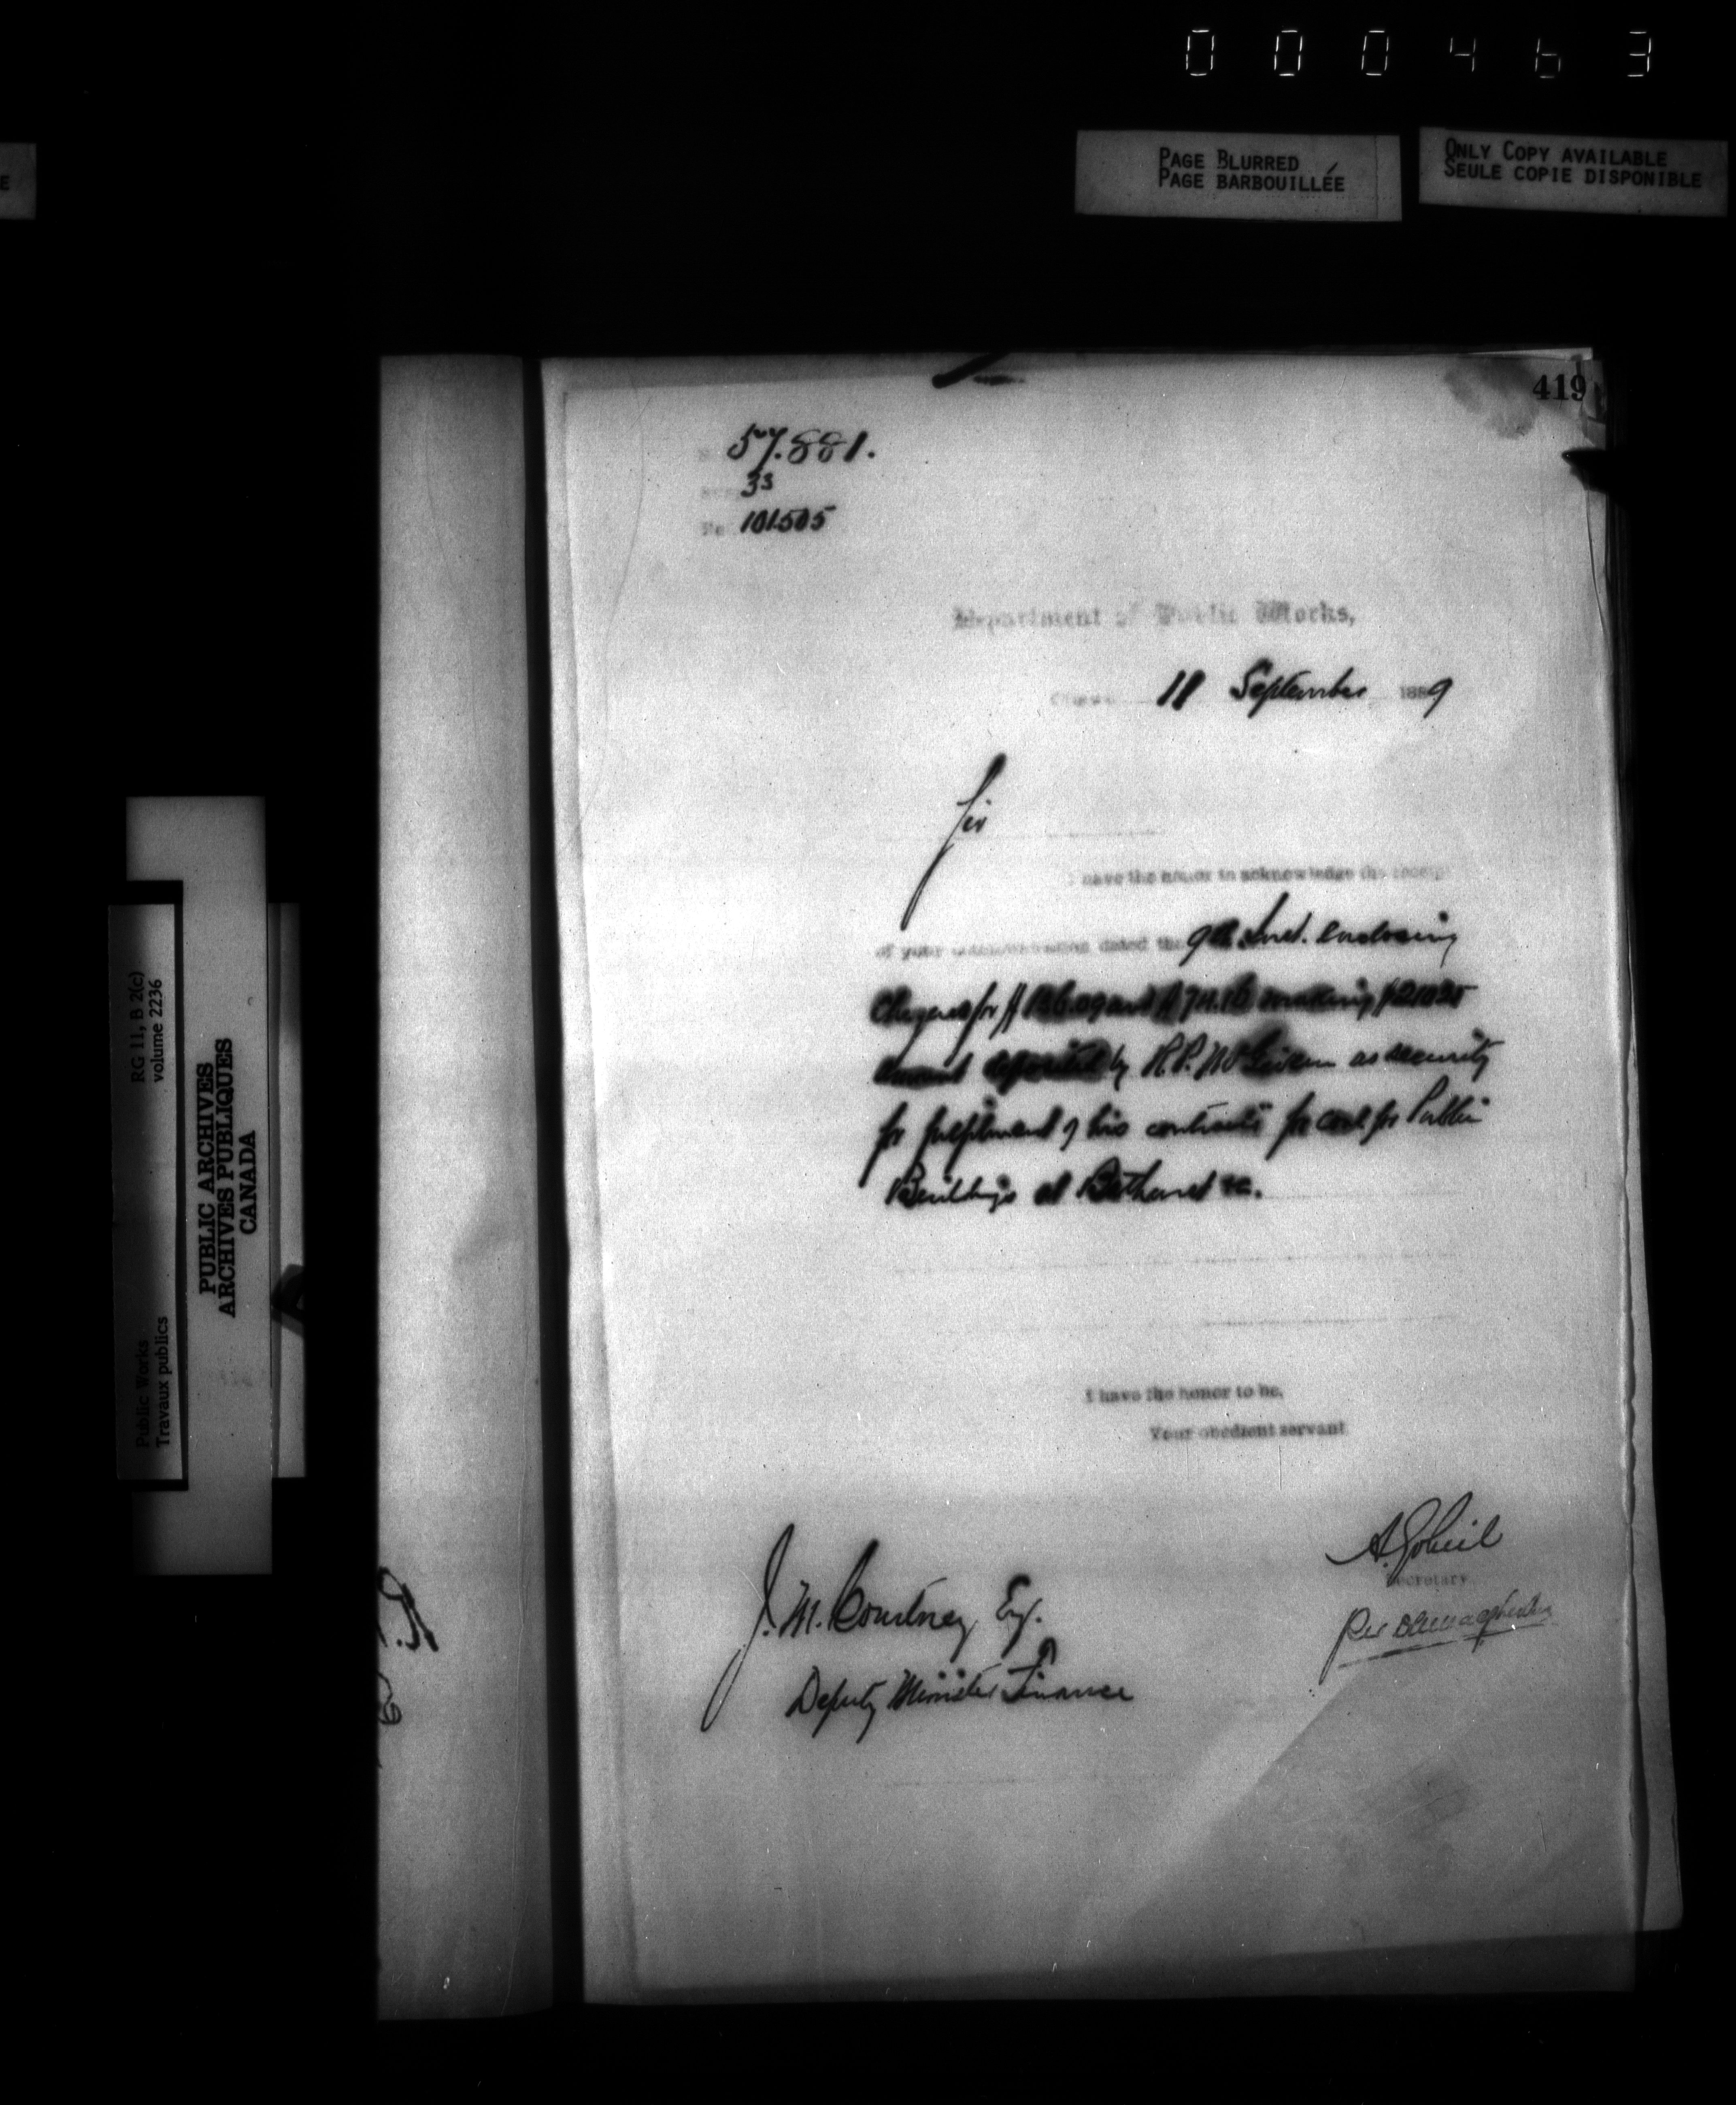 000463
PAGE BLURRED
PAGE BARBOUILLÉE
ONLY COPY AVAILABLE
SEULE COPIE DISPONIBLE
E
419
57.881.
33
101505
Department of Public Works,
18 September 1889
Sir
I have the honor to acknowledge the receipt
of your communication dated the 9th Inst. Enclosing
Cheques for $ and $ making $
amount deposited by H.P. as security
for fulfilment of his contracts for coal for Public
Buildings at Bathurst &c.
I have the honor to be,
Your obedient servant
A. Gobeil
Secretary
Per
J. M. Courtney, Esq.
Deputy Minister Finance
RG 11, B 2(c)
volume 2236
Public Works
Travaux publics
PUBLIC ARCHIVES
ARCHIVES PUBLIQUES
CANADA